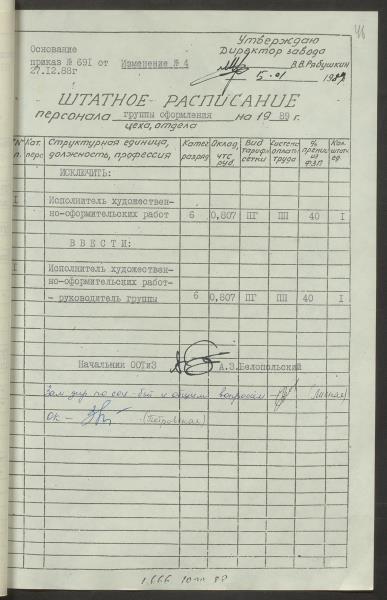 46
Утверждаю
Основание
Директор завода
приказ № 691 от Изменение № 4
В.В.Рябушкин
27.12.88г
5.01 1989г.
ШТАТНОЕ РАСПИСАНИЕ
персонала группы оформления на 19 89 г.
цеха, отдела
№ п. Кат. перс Структурная единица, должность, профессия Катег разряд Оклад, чтс руб. Вид тариф. сетки Система оплат. труда % премии из ФЗП Кол. штат. ед.
ИСКЛЮЧИТЬ:
I Исполнитель художествен-
но-оформительских работ 6 0,807 ПГ ПП 40 I
ВВЕСТИ:
I Исполнитель художествен-
но-оформительских работ-
- руководитель группы 6 0,807 ПГ ПП 40 I
Начальник ООТиЗ А.З.Белопольский
Зам. дир по соц-быт и общим вопросам
ОК - (Петровская)